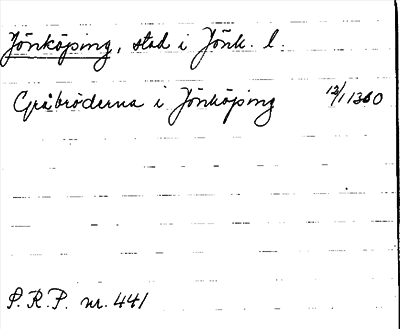 Jönköping, stad i Jönk. l.
Gråbröderna i Jönköping 12/1 1360
P.R.P. nr. 441